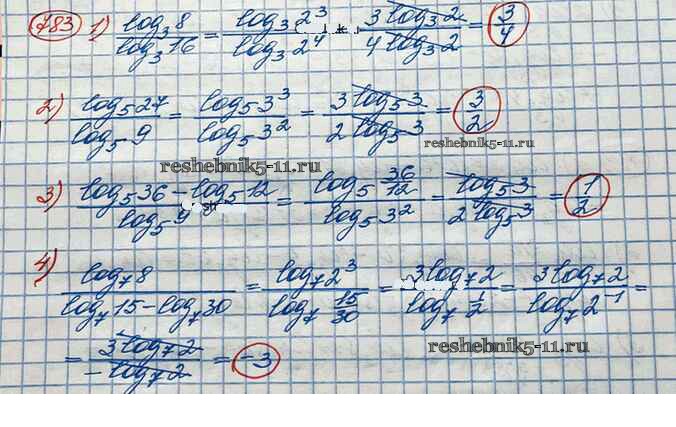 783 1) log₃8 / log₃16 = log₃2³ / log₃2⁴ = 3 log₃2 / 4 log₃2 = 3/4
2) log₅27 / log₅9 = log₅3³ / log₅3² = 3 log₅3 / 2 log₅3 = 3/2
reshebnik5-11.ru
reshebnik5-11.ru
3) log₅36 - log₅12 / log₅9 = log₅ 36/12 / log₅3² = log₅3 / 2 log₅3 = 1/2
4) log₇8 / log₇15 - log₇30 = log₇2³ / log₇ 15/30 = 3 log₇2 / log₇ 1/2 = 3 log₇2 / log₇2⁻¹ =
= 3 log₇2 / - log₇2 = -3
reshebnik5-11.ru